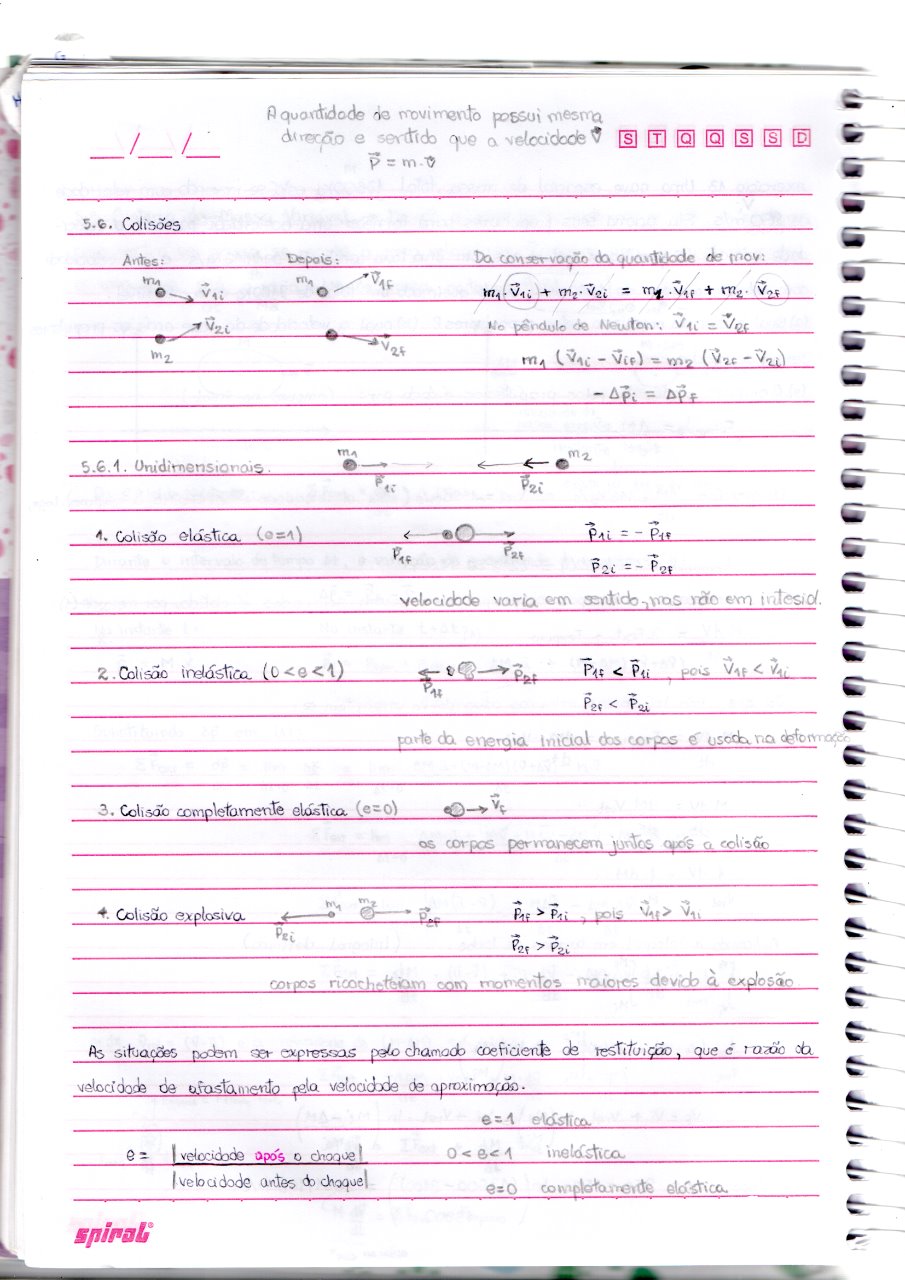 A quantidade de movimento possui mesma
direção e sentido que a velocidade v⃗
P⃗ = m·v⃗
__/__/__
S T Q Q S S D
5.6. Colisões
Antes:
Depois:
Da conservação da quantidade de mov:
m₁ v⃗1i
m₁ v⃗1f
m₁·v⃗1i + m₂·v⃗2i = m₁·v⃗1f + m₂·v⃗2f
v⃗2i
No pêndulo de Newton: v⃗1i = v⃗2f
m₂
v2f
m₁ (v⃗1i - v⃗if) = m₂ (v⃗2f - v⃗2i)
- Δp⃗i = Δp⃗f
5.6.1. Unidimensionais.
m₁ p⃗1i p⃗2i m₂
1. Colisão elástica (e=1)
p⃗1f p⃗2f
p⃗1i = - p⃗1f
p⃗2i = - p⃗2f
velocidade varia em sentido, mas não em intesid.
2. Colisão inelástica (0 < e < 1)
p⃗1f p⃗2f
p⃗1f < p⃗1i, pois v⃗1f < v⃗1i
p⃗2f < p⃗2i
parte da energia inicial dos corpos é usada na deformação
3. Colisão completamente elástica (e=0)
v⃗f
os corpos permanecem juntos após a colisão
4. Colisão explosiva
p⃗2i m₁ m₂ p⃗2f
p⃗1f > p⃗1i, pois v⃗1f > v⃗1i
p⃗2f > p⃗2i
corpos ricocheteiam com momentos maiores devido à explosão
As situações podem ser expressas pelo chamado coeficiente de restituição, que é razão da
velocidade de afastamento pela velocidade de aproximação.
e=1 elástica
e= |velocidade após o choque|
|velocidade antes do choque|
0 < e < 1 inelástica
e=0 completamente elástica
spiral®